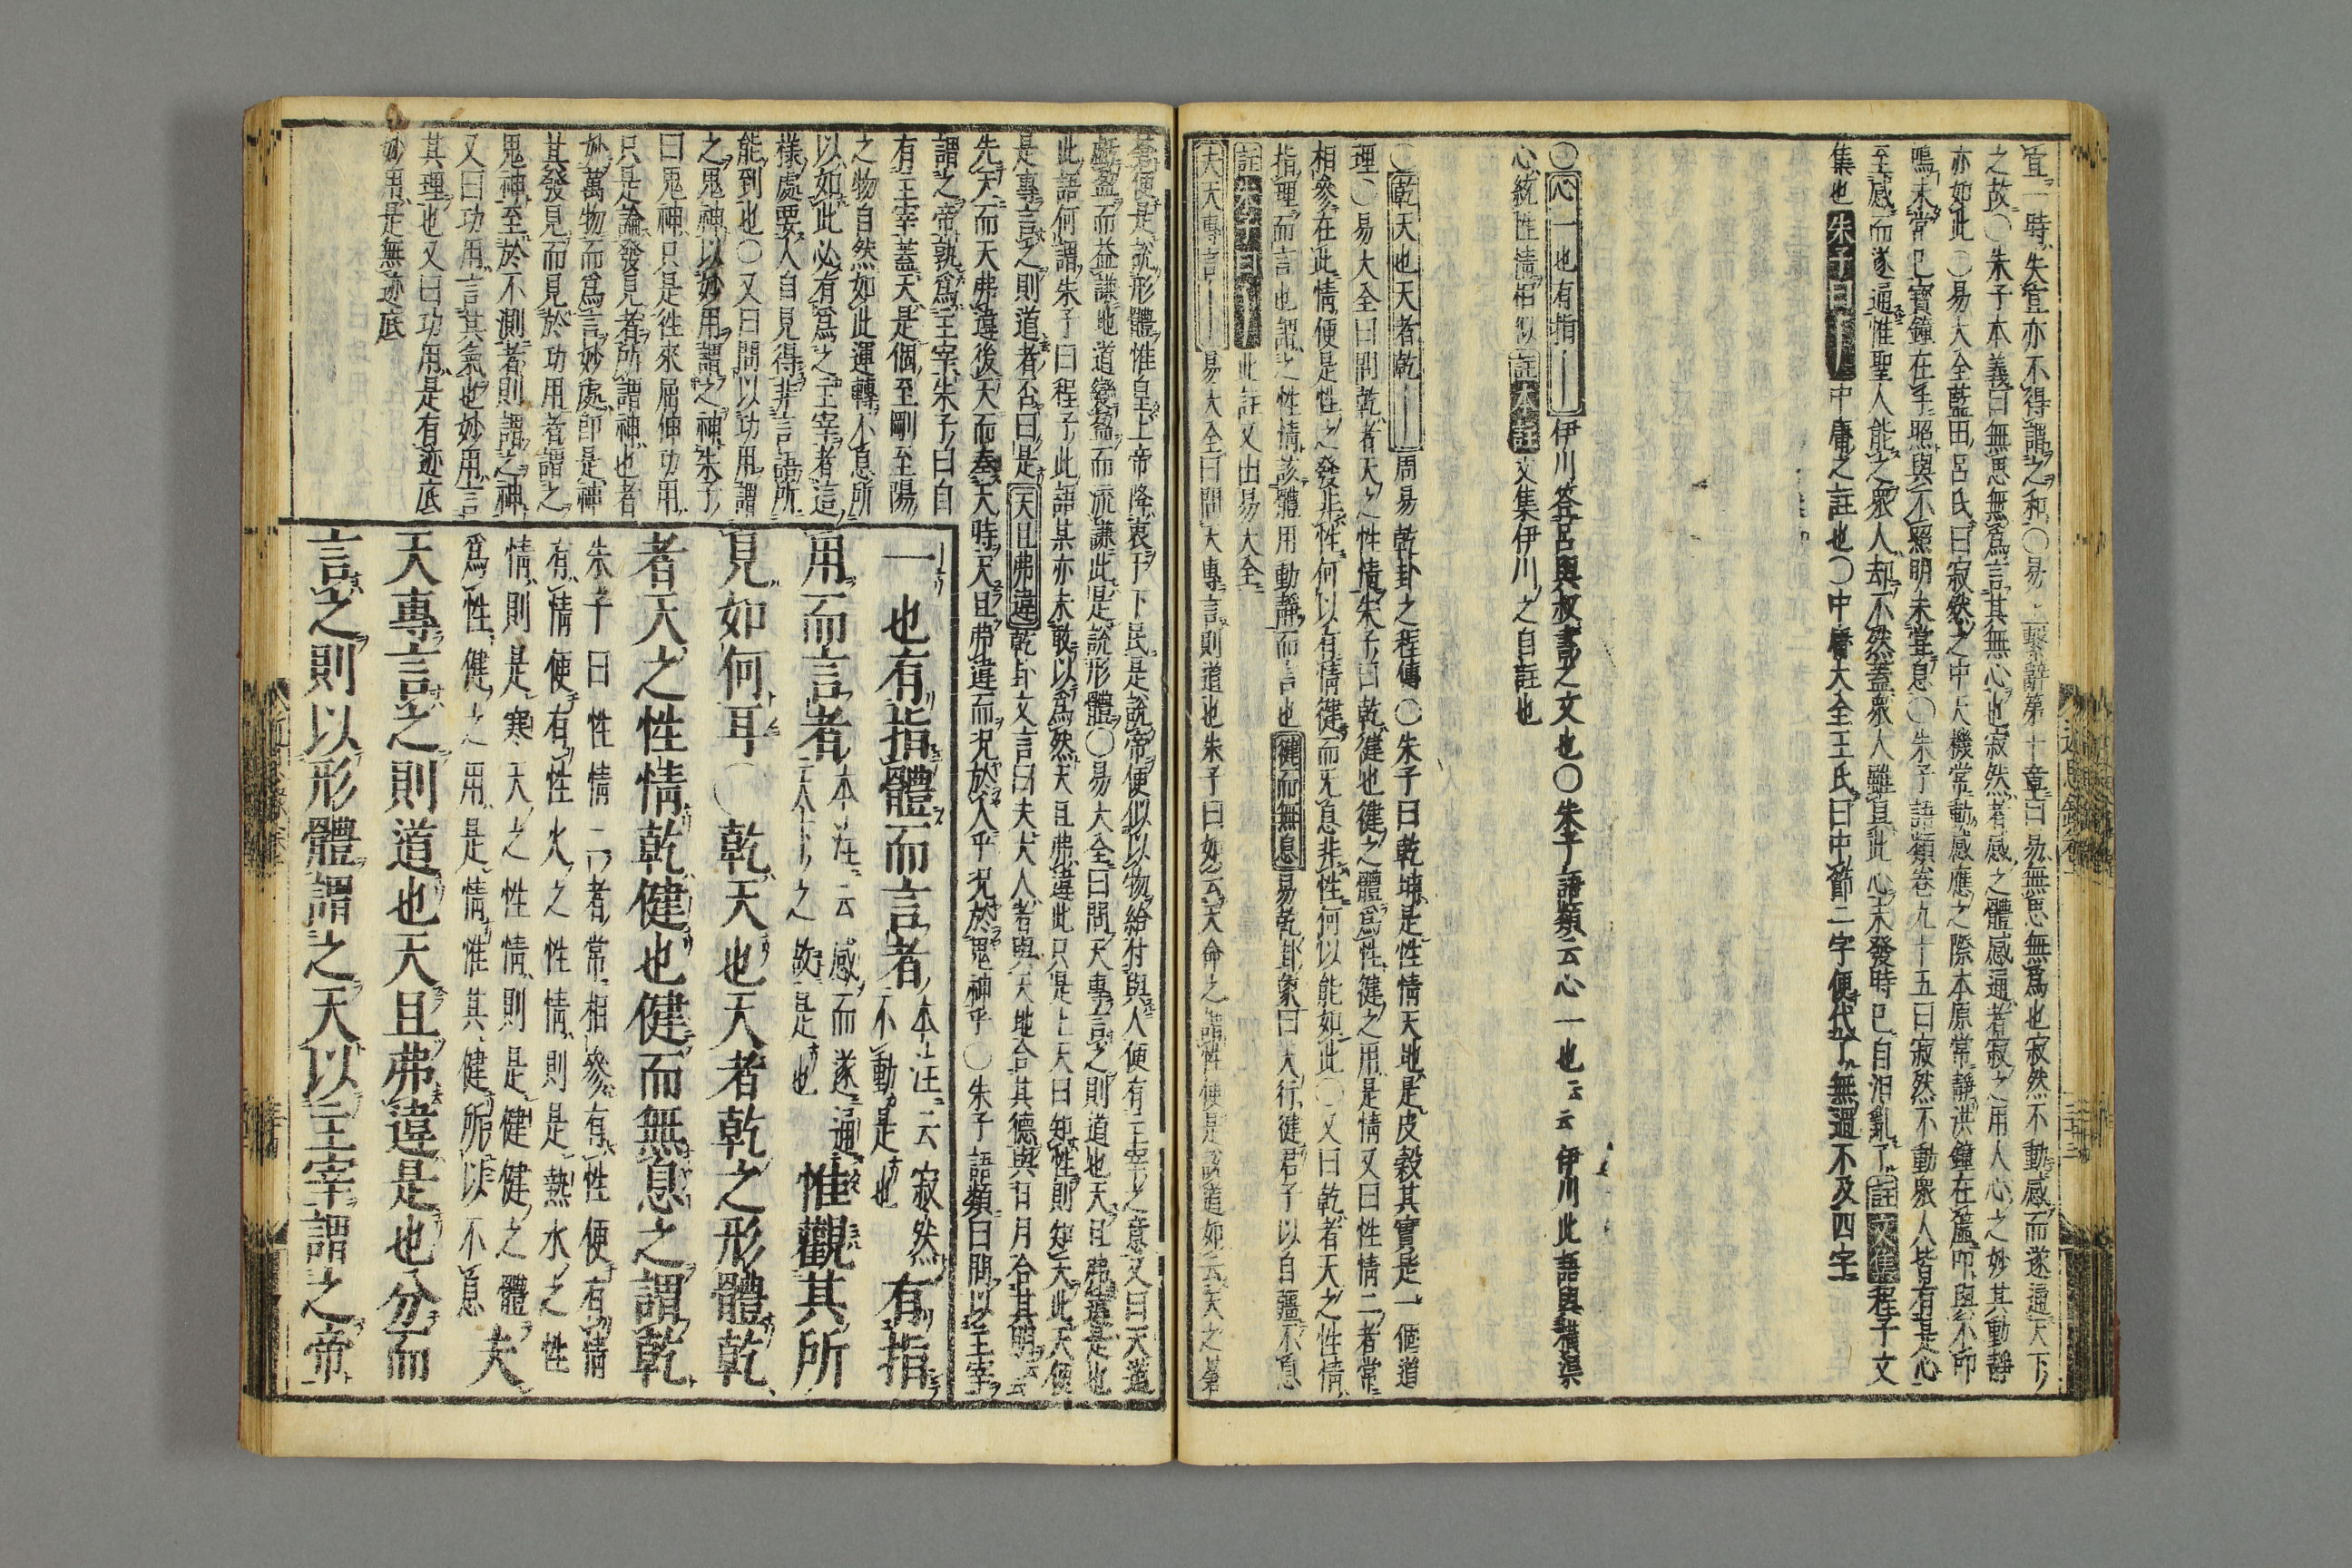 宜一時失宜亦不得謂之和〇易上繫辭第十章曰易無思無爲也寂然不動感而遂通天下
之故〇朱子本義曰無思無爲言其無心也寂然者感之體感通者寂之用人心之妙其動靜
亦如此〇易大全藍田呂氏曰寂然之中天機常動感應之際本原常靜洪鐘在簴叩與不叩
鳴未常已寳鑑在手照與不照明未嘗息〇朱子語類卷九十五曰寂然不動衆人皆有是心
至感而遂通惟聖人能之衆人却不然蓋衆人雖具此心未發時已自汨亂了註文集程子文
集也朱子曰中庸之註也〇中庸大全王氏曰中節二字便代了無過不及四字
〇心一也有指伊川答呂與叔書之文也〇朱子語類云心一也云云伊川此語與橫渠
心統性情相似註本註文集伊川之自註也
〇乾天也天者乾周易乾卦之程傳〇朱子曰乾坤是性情天地是皮殼其實是一個道
理〇易大全曰問乾者天之性情朱子曰乾健也健之體爲性健之用是情又曰性情二者常
相參在此情便是性之發非性何以有情健而无息非性何以能如此〇又曰乾者天之性情
指理而言也謂之性情該體用動靜而言也健而無息易乾卦象曰天行健君子以自彊不息
註朱子曰此註又出易大全
夫天專言易大全曰問天專言則道也朱子曰如云天命之謂性便是說道如云天之蒼
蒼便是說形體惟皇上帝降衷于下民是說帝便似以物給付與人便有主宰之意又曰天道
虧盈而益謙地道變盈而流謙此是說形體〇易大全曰問天專言之則道也天且弗違是也
此語何謂朱子曰程子此語某亦未敢以爲然天且弗違此只是上天曰知性則知天此天便
是專言之則道者否曰是天且弗違乾卦文言曰夫大人者與天地合其德與日月合其明云云
先天而天弗違後天而奉天時天且弗違而況於人乎況於鬼神乎〇朱子語類曰問以主宰
謂之帝孰爲主宰朱子曰自
有主宰蓋天是個至剛至陽
之物自然如此運轉不息所
以如此必有爲之主宰者這
樣處要人自見得非言語所
能到也〇又曰問以功用謂
之鬼神以妙用謂之神朱子
曰鬼神只是徃來屈伸功用
只是論發見者所謂神也者
妙萬物而爲言妙處卽是神
其發見而見於功用者謂之
鬼神至於不測者則謂之神
又曰功用言其氣也妙用言
其理也又曰功用是有迹底
妙用是無迹底
一也有指體而言者本註云寂然不動是也有指
用而言者本註云感而遂通天下之故是也惟觀其所
見如何耳〇乾天也天者乾之形體乾
者天之性情乾健也健而無息之謂乾
朱子曰性情二者常相參有性便有情
有情便有性火之性情則是熱水之性
情則是寒天之性情則是健健之體
爲性健之用是情惟其健所以不息夫
天專言之則道也天且弗違是也分而
言之則以形體謂之天以主宰謂之帝